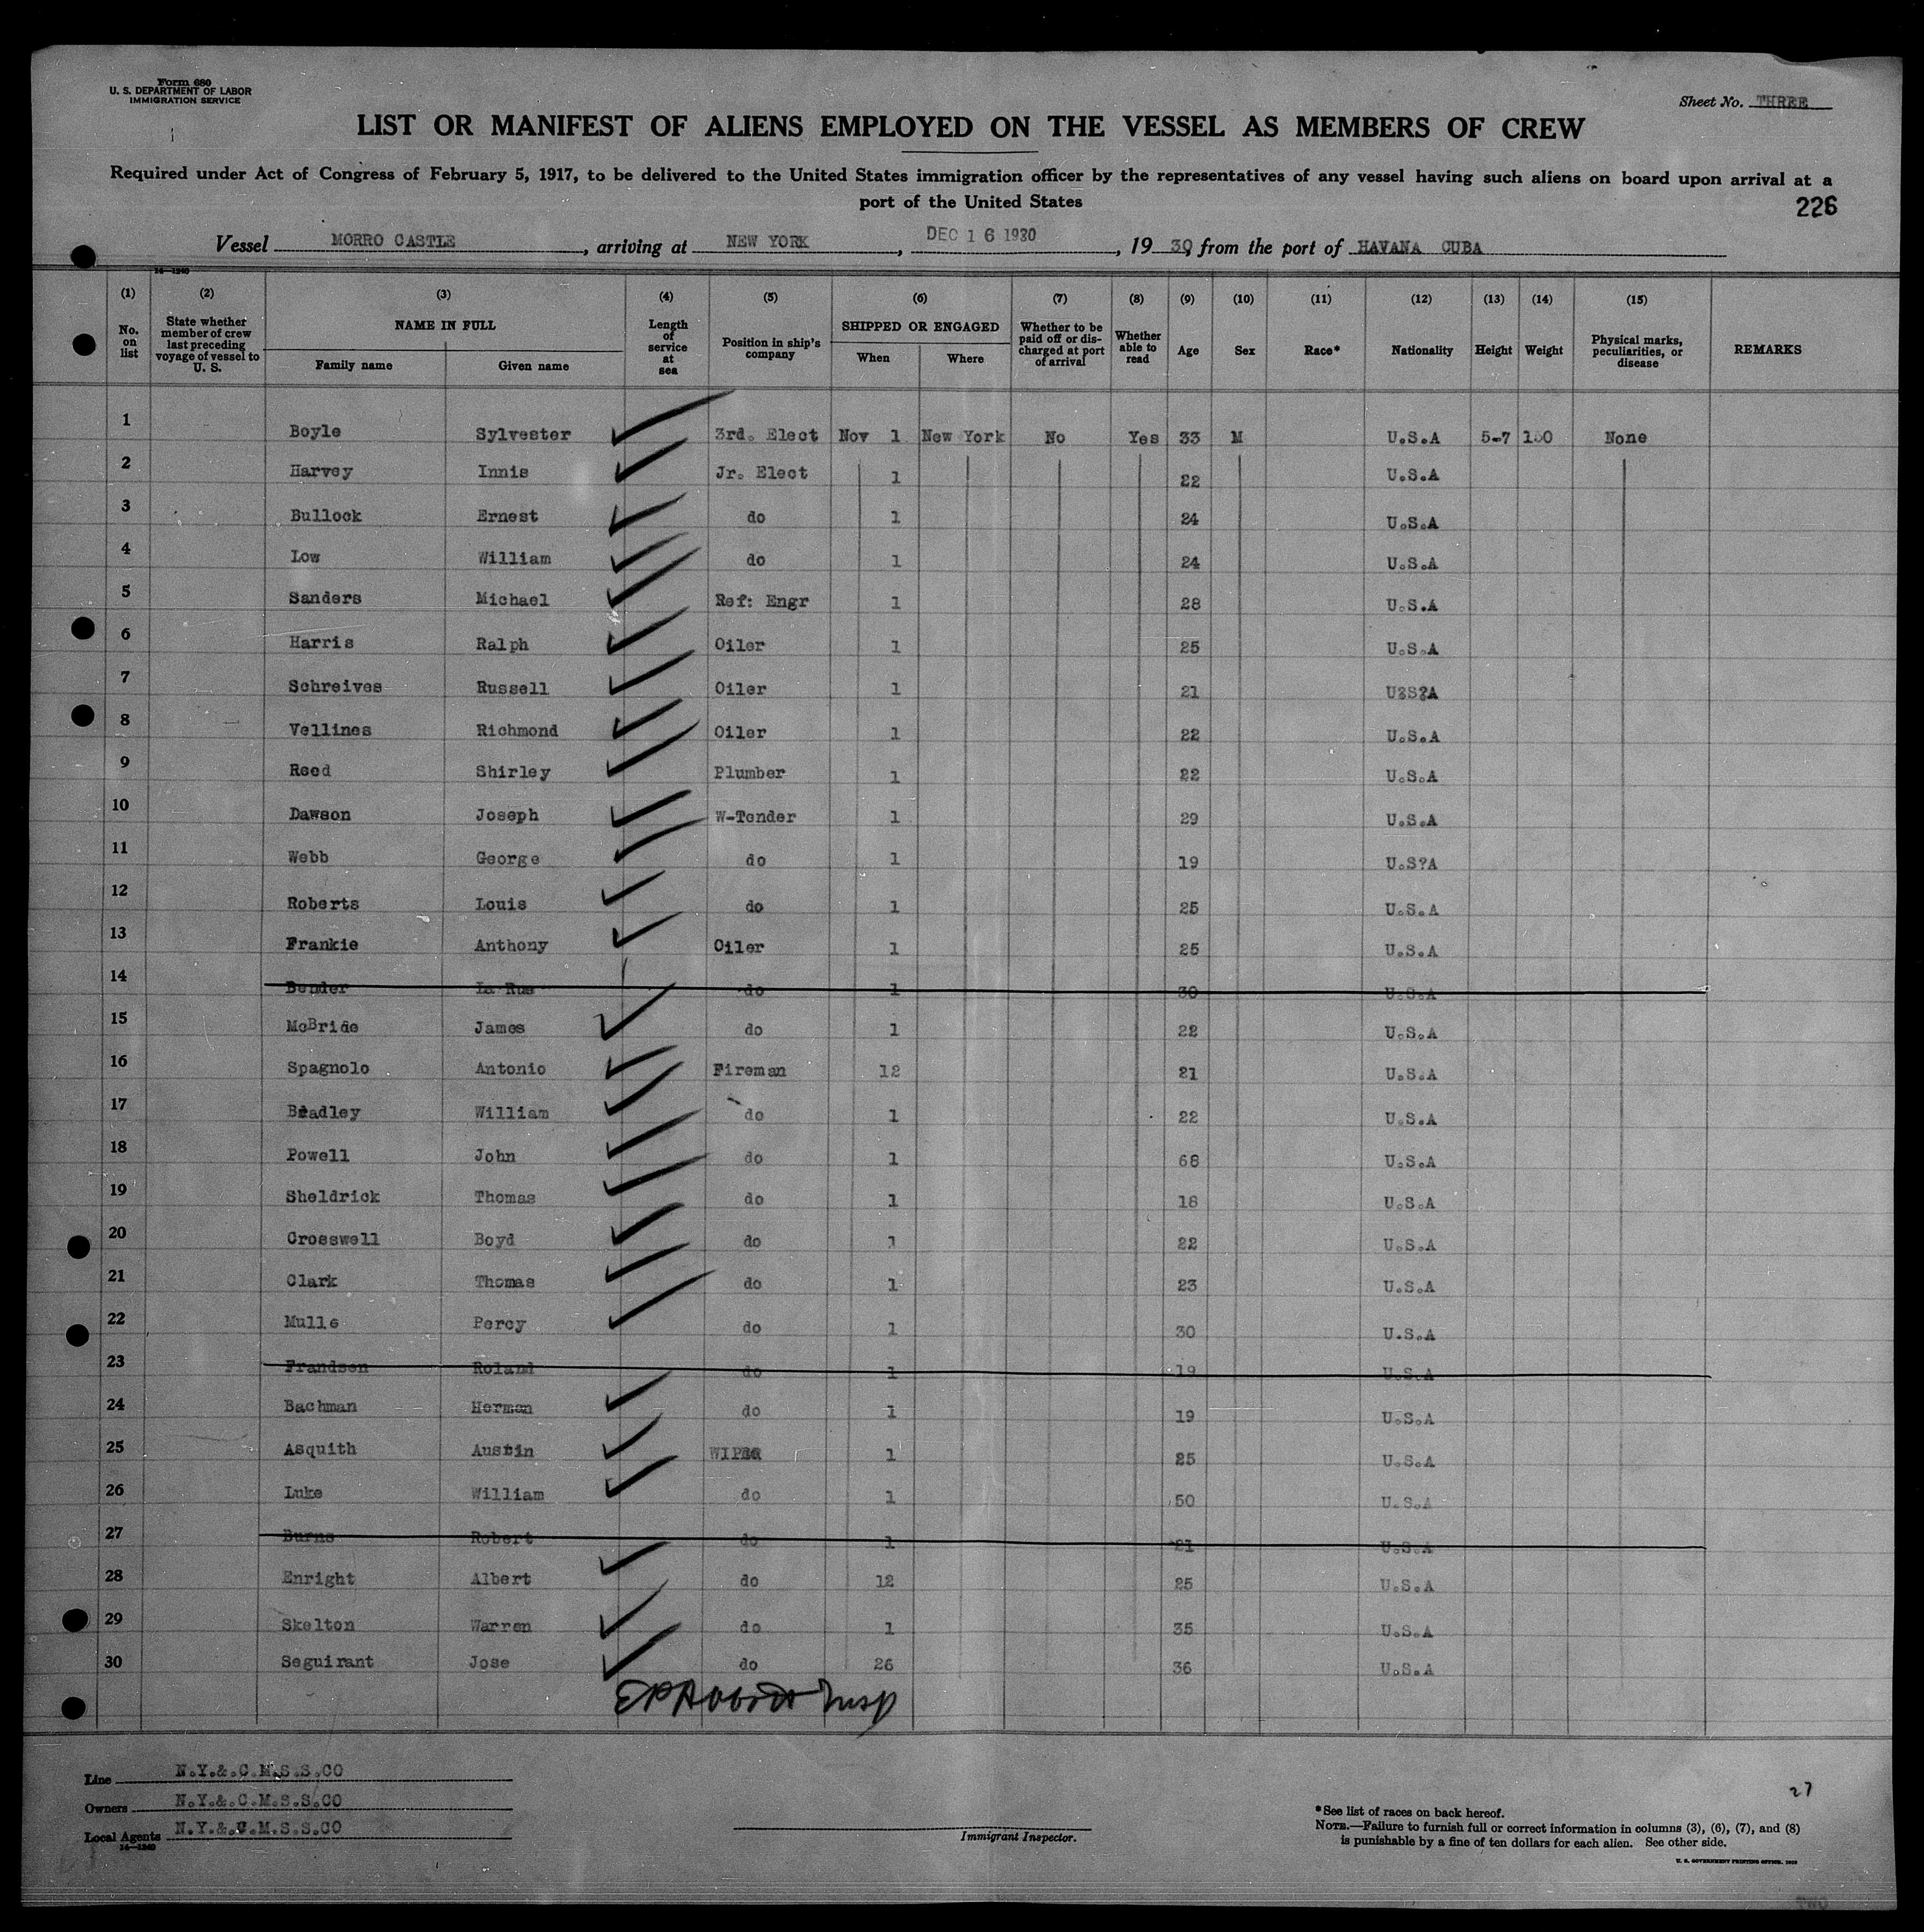 Form 680
U. S. DEPARTMENT OF LABOR
IMMIGRATION SERVICE
Sheet No. THREE
LIST OR MANIFEST OF ALIENS EMPLOYED ON THE VESSEL AS MEMBERS OF CREW
Required under Act of Congress of February 5, 1917, to be delivered to the United States immigration officer by the representatives of any vessel having such aliens on board upon arrival at a
port of the United States
226
Vessel MORRO CASTLE, arriving at NEW YORK, DEC 16 1930, 19 30, from the port of HAVANA CUBA
14—1240
(1) (2) (3) (4) (5) (6) (7) (8) (9) (10) (11) (12) (13) (14) (15)
No. on list State whether member of crew last preceding voyage of vessel to U. S. NAME IN FULL Family name Given name Length of service at sea Position in ship's company SHIPPED OR ENGAGED When Where Whether to be paid off or discharged at port of arrival Whether able to read Age Sex Race* Nationality Height Weight Physical marks, peculiarities, or disease REMARKS
1 Boyle Sylvester 3rd. Elect Nov 1 New York No Yes 33 M U.S.A 5-7 None
2 Harvey Innis Jr. Elect 1 22 U.S.A
3 Bullock Ernest do 1 24 U.S.A
4 Low William do 1 24 U.S.A
5 Sanders Michael Ref: Engr 1 28 U.S.A
6 Harris Ralph Oiler 1 25 U.S.A
7 Schreives Russell Oiler 1 21 U?S?A
8 Vellines Richmond Oiler 1 22 U.S.A
9 Reed Shirley Plumber 1 22 U.S.A
10 Dawson Joseph W-Tender 1 29 U.S.A
11 Webb George do 1 19 U.S?A
12 Roberts Louis do 1 25 U.S.A
13 Frankie Anthony Oiler 1 25 U.S.A
14 Bender La Rue do 1 30 U.S.A
15 McBride James do 1 22 U.S.A
16 Spagnolo Antonio Fireman 12 21 U.S.A
17 Bradley William do 1 22 U.S.A
18 Powell John do 1 68 U.S.A
19 Sheldrick Thomas do 1 18 U.S.A
20 Crosswell Boyd do 1 22 U.S.A
21 Clark Thomas do 1 23 U.S.A
22 Mulls Percy do 1 30 U.S.A
23 Frandsen Roland do 1 19 U.S.A
24 Bachman Herman do 1 19 U.S.A
25 Asquith Austin WIPER 1 25 U.S.A
26 Luke William do 1 50 U.S.A
27 Burns Robert do 1 21 U.S.A
28 Enright Albert do 12 25 U.S.A
29 Skelton Warren do 1 35 U.S.A
30 Seguirant Jose do 26 36 U.S.A
Insp
Line N.Y.&.C.M.S.S.CO
Owners N.Y.&.C.M.S.S.CO
Local Agents N.Y.&.C.M.S.S.CO
14—1240
Immigrant Inspector.
27
*See list of races on back hereof.
NOTE.—Failure to furnish full or correct information in columns (3), (6), (7), and (8)
is punishable by a fine of ten dollars for each alien. See other side.
TWO